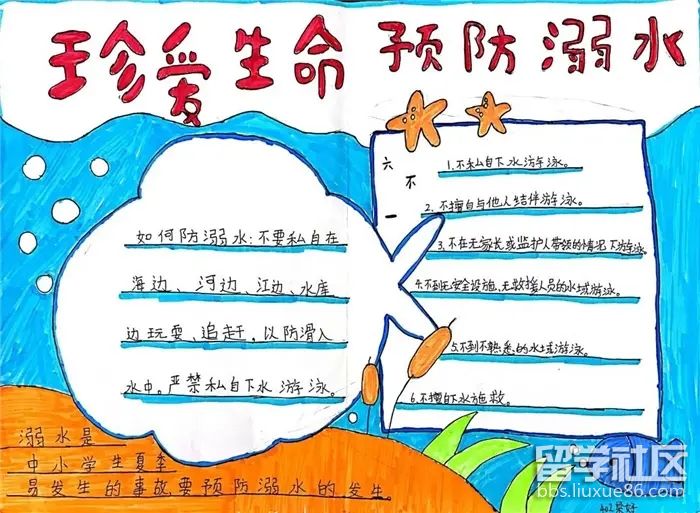 珍爱生命 预防溺水
如何防溺水:不要私自在
海边、河边、江边、水库
边玩耍、追赶,以防滑入
水中。严禁私自下水游泳。
六不一
1.不私自下水游泳。
2.不擅自与他人结伴游泳。
3.不在无家长或监护人带领的情况下游泳。
4.不到无安全设施、无救援人员的水域游泳。
5.不到不熟悉的水域游泳。
6.不擅自下水施救。
溺水是
中小学生夏季
易发生的事故要预防溺水的发生。
留学社区
bbs.liuxue86.com
402